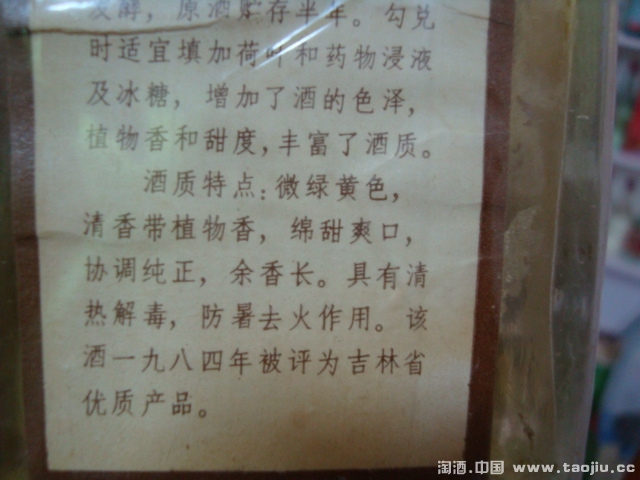 发酵，原酒贮存半年。勾兑
时适宜填加荷叶和药物浸液
及冰糖，增加了酒的色泽，
植物香和甜度，丰富了酒质。
酒质特点：微绿黄色，
清香带植物香，绵甜爽口，
协调纯正，余香长。具有清
热解毒，防暑去火作用。该
酒一九八四年被评为吉林省
优质产品。
淘酒.中国 www.taojiu.cc